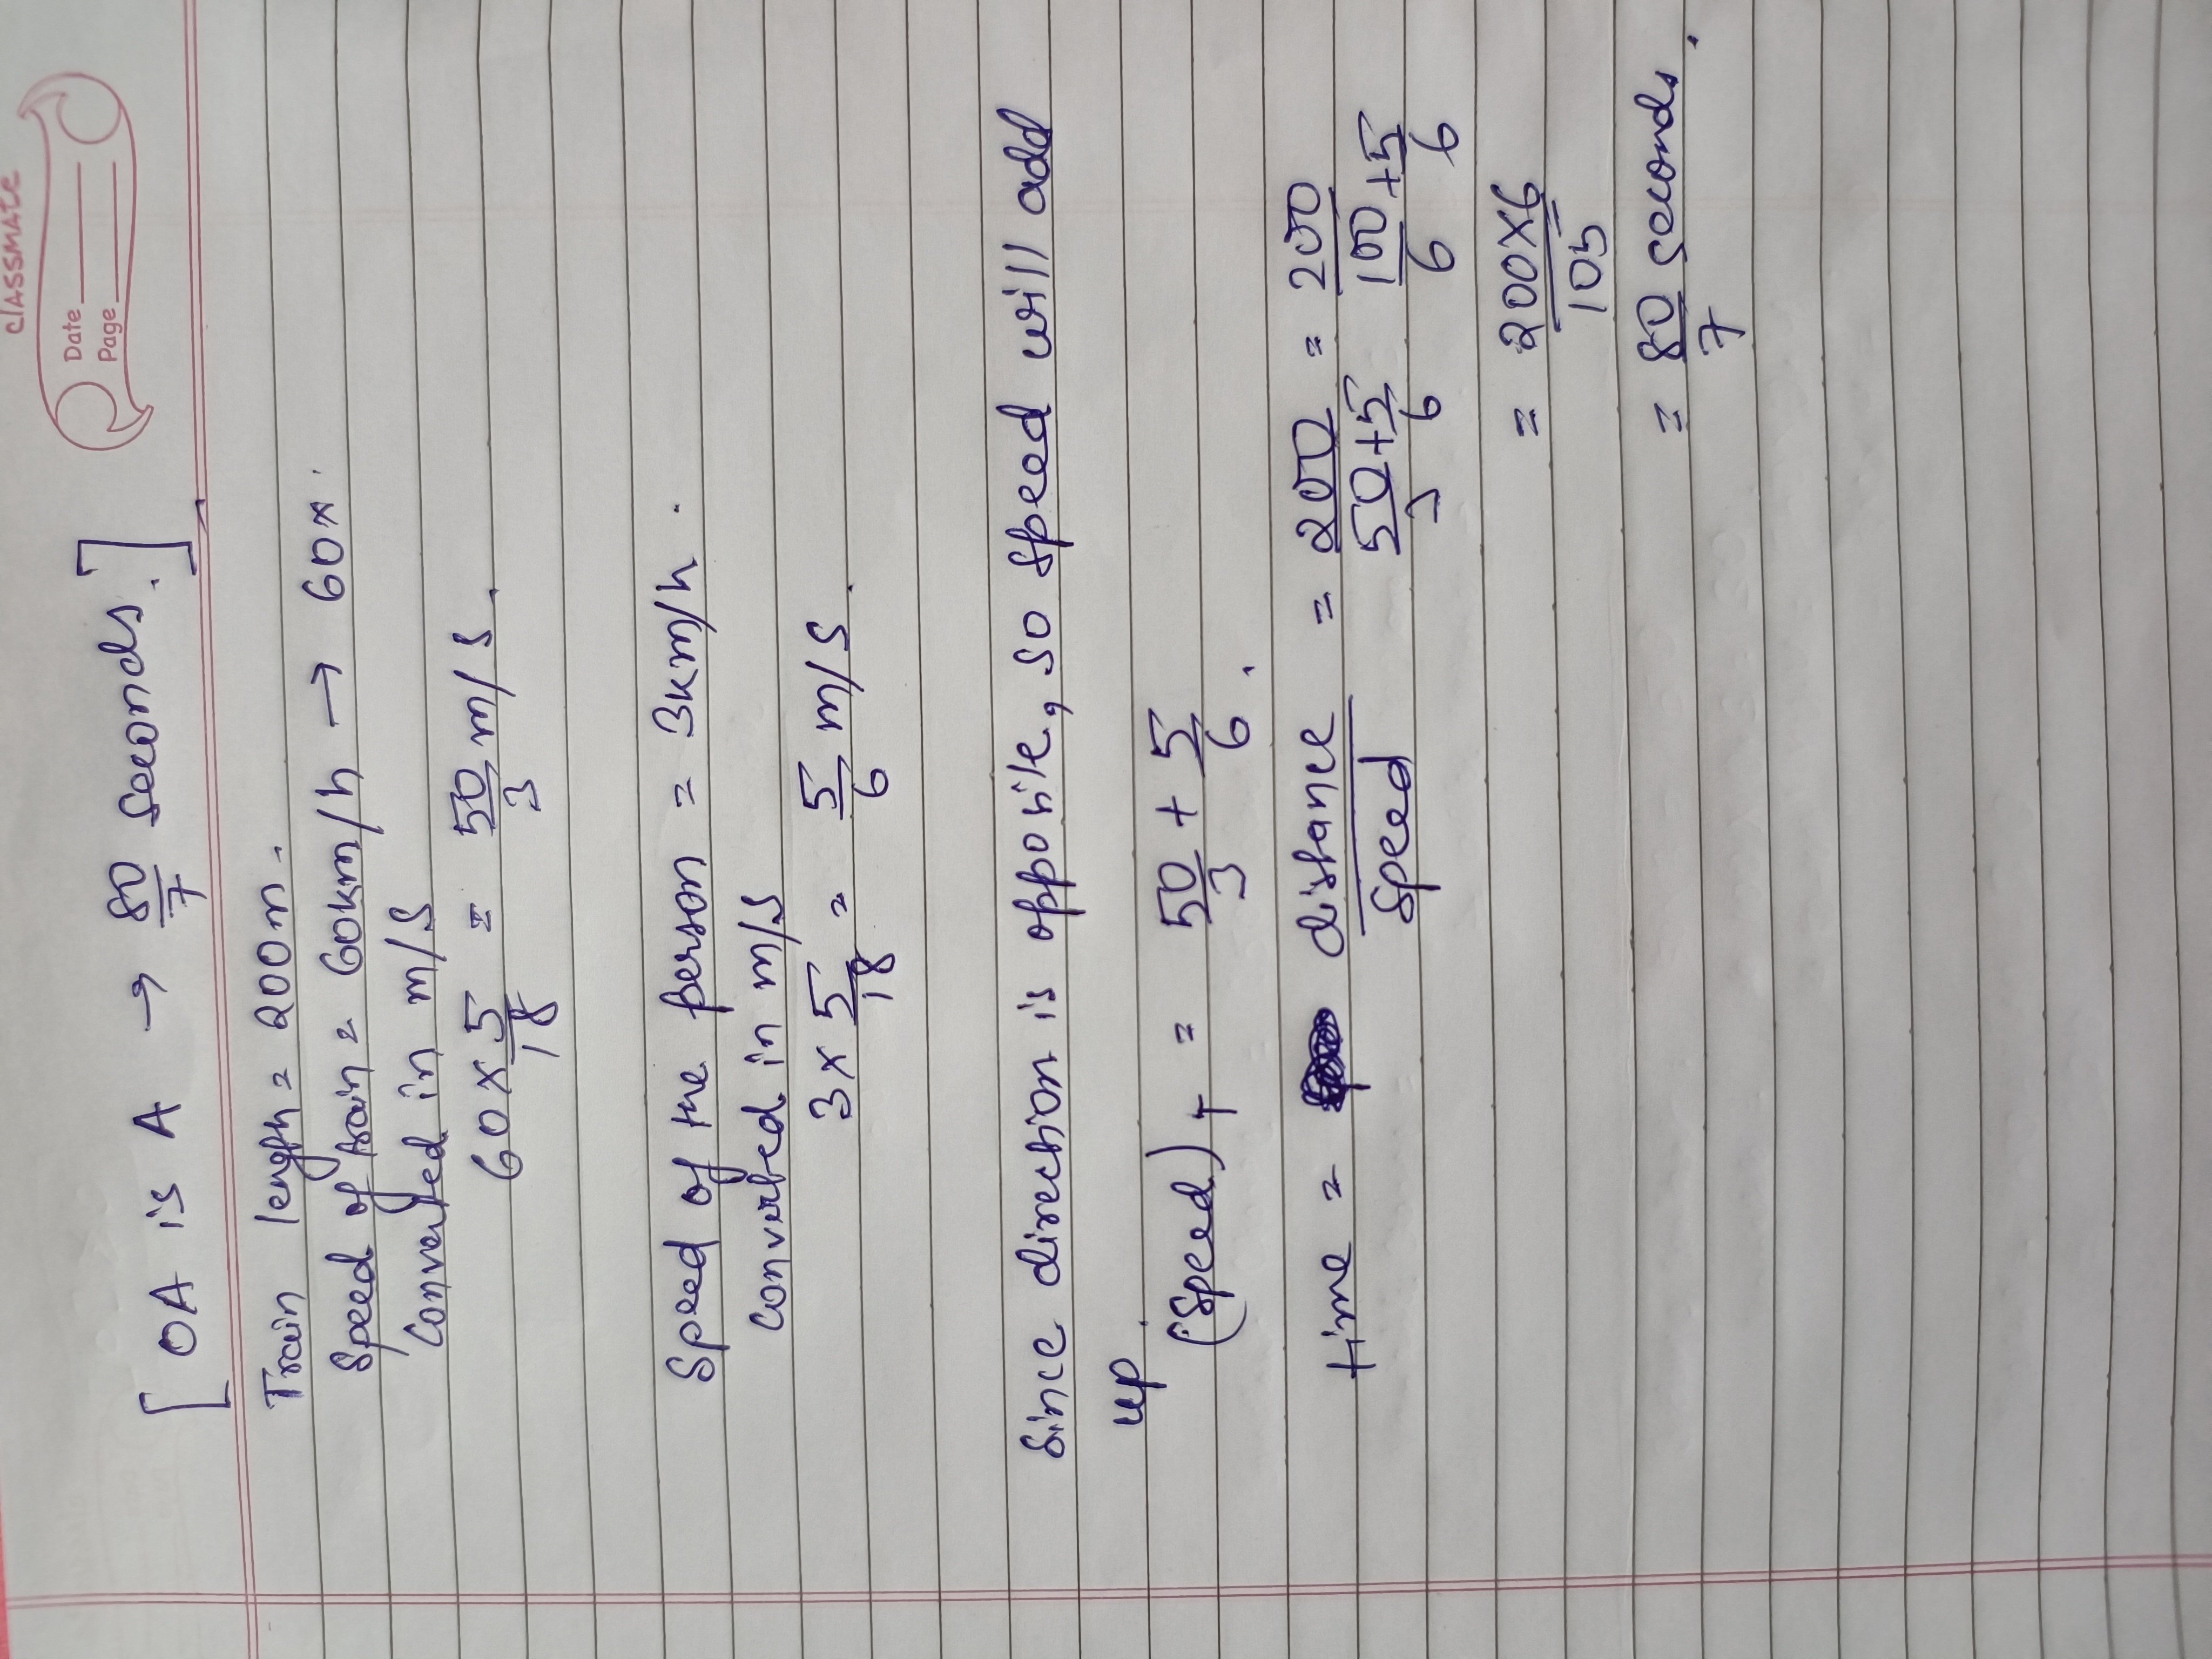 classmate
Date
Page
[OA is A → 80/7 seconds.]
Train length = 200m.
Speed of train = 60km/h → 60x.
Converted in m/s
60 x 5/18 = 50/3 m/s.
Speed of the person = 3km/h.
converted in m/s
3 x 5/18 = 5/6 m/s.
Since direction is opposite, so speed will add
up.
(Speed)T = 50/3 + 5/6.
time = distance/speed = 200/(50/3 + 5/6) = 200/(100/6 + 5/6)
= 200x6/105
= 80/7 seconds.